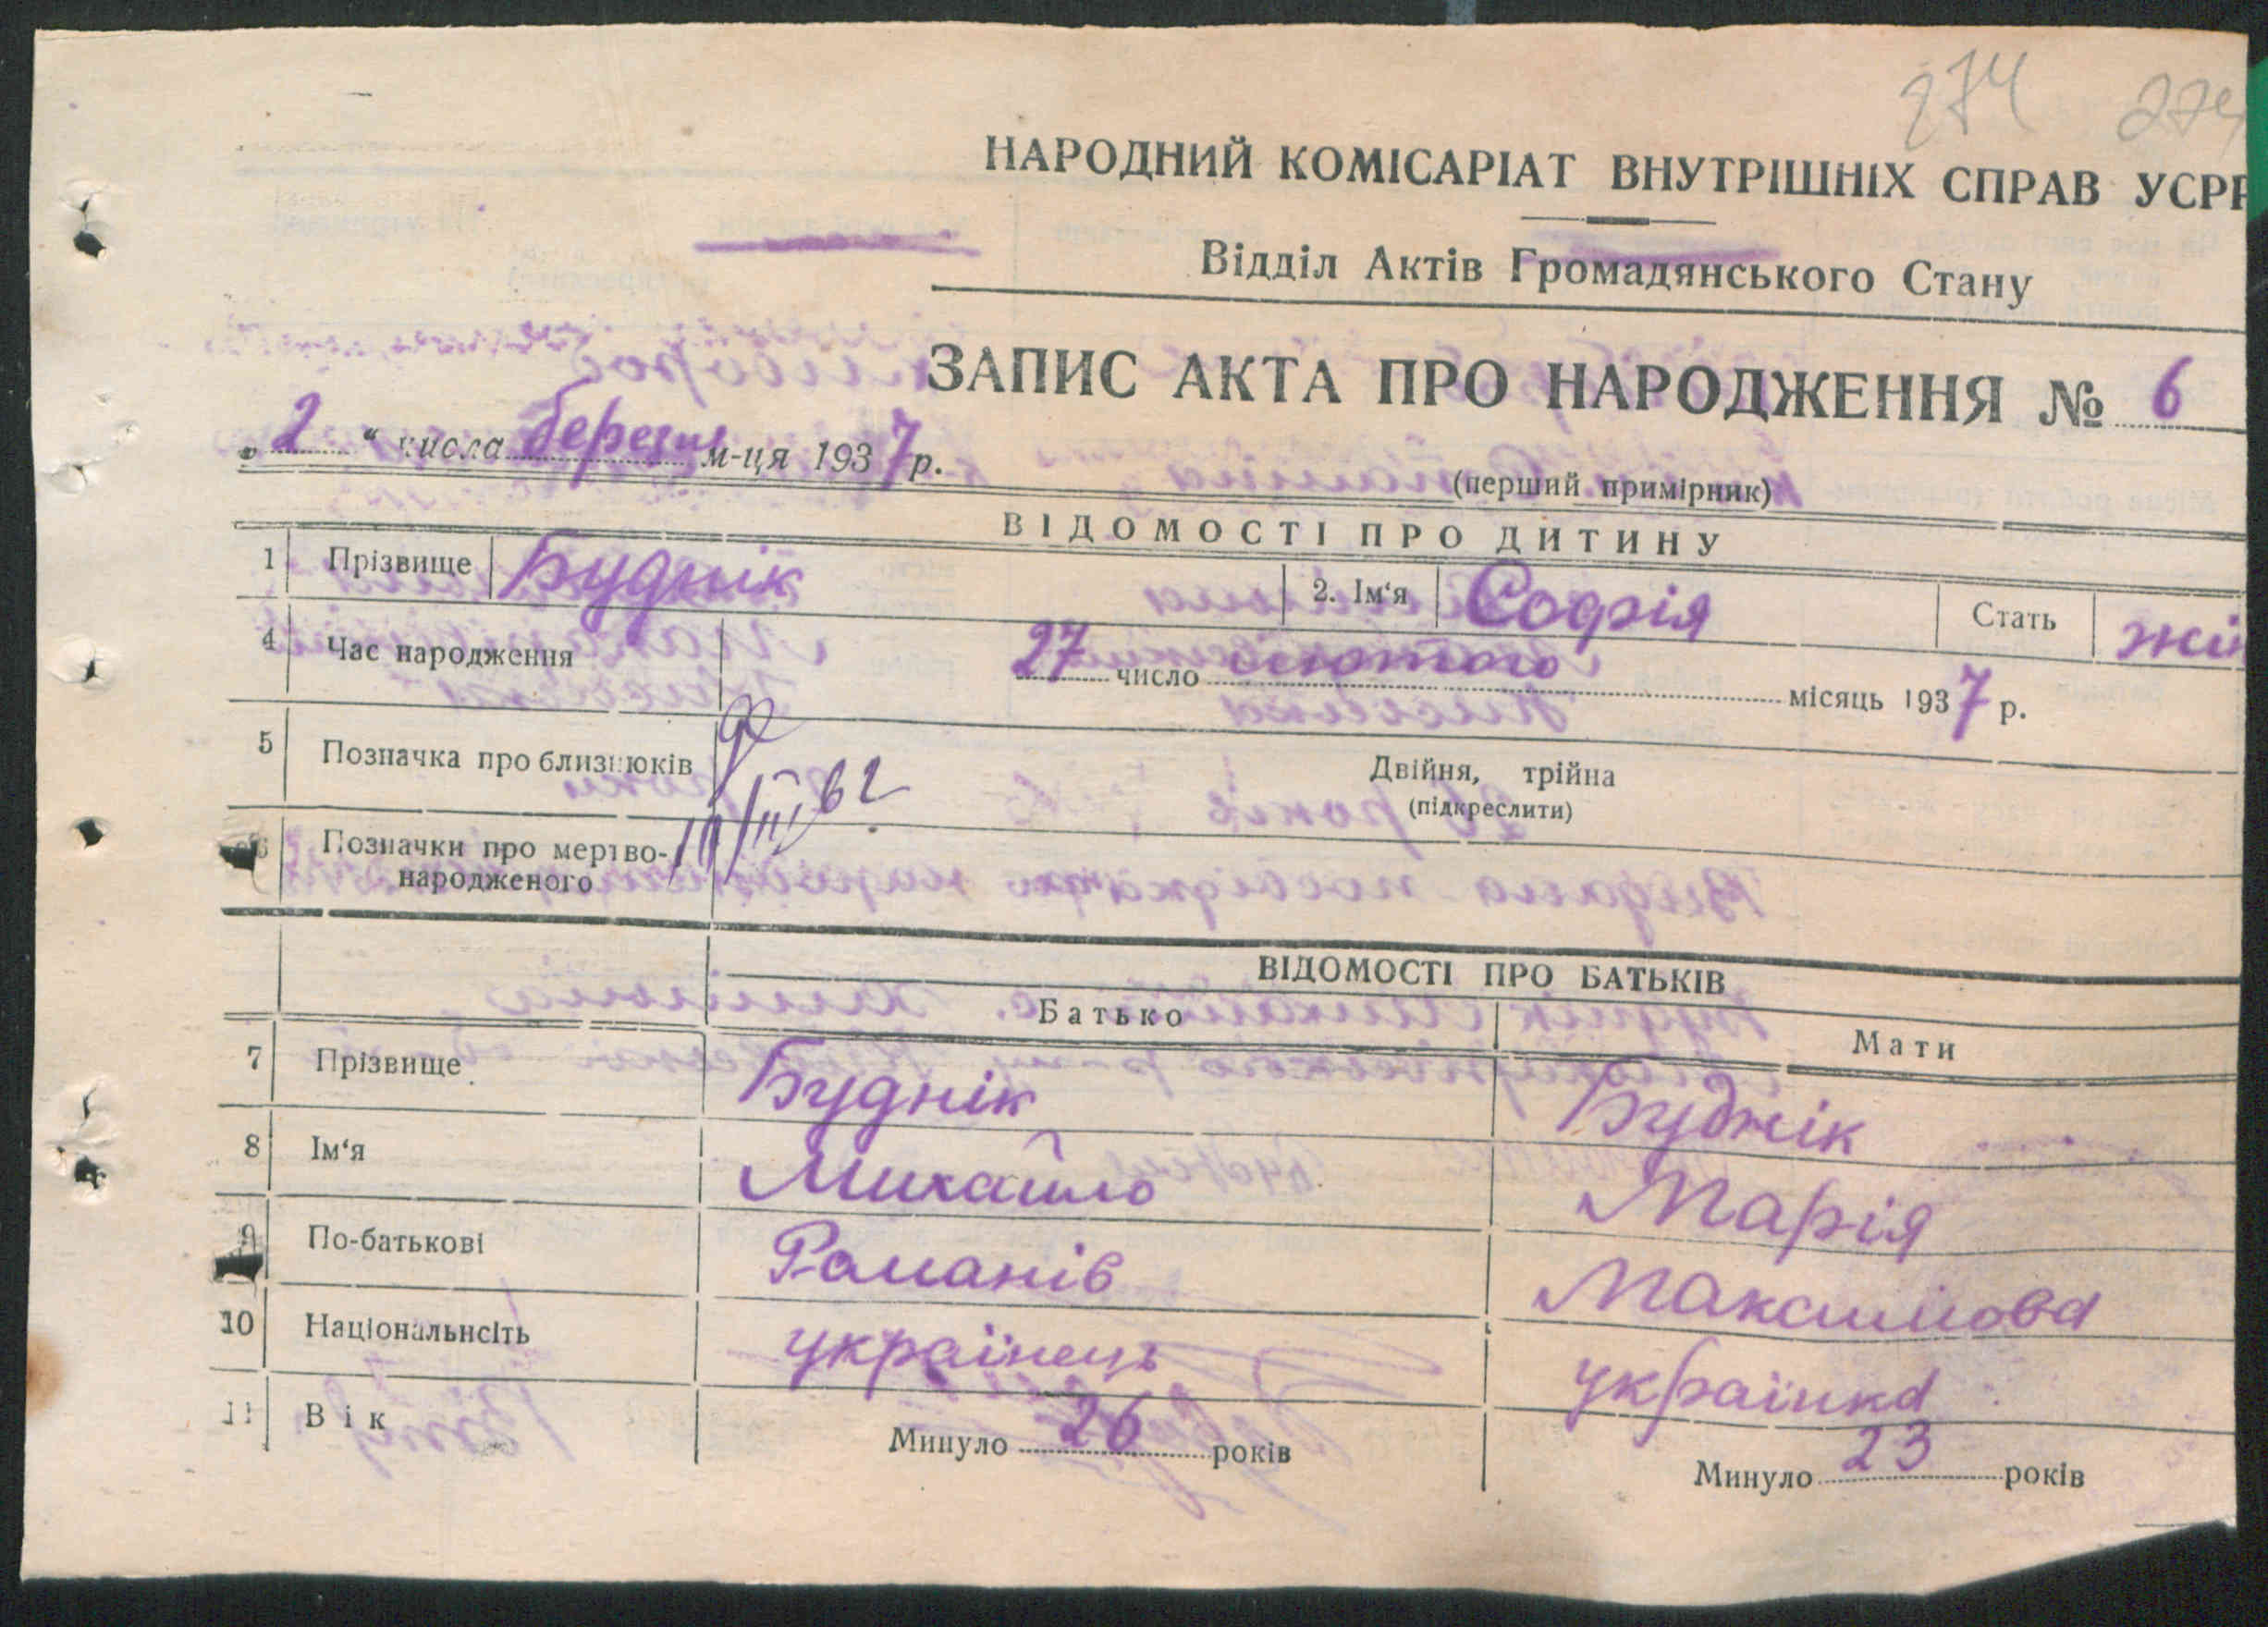 274 274
НАРОДНИЙ КОМІСАРІАТ ВНУТРІШНІХ СПРАВ УСРР
Відділ Актів Громадянського Стану
ЗАПИС АКТА ПРО НАРОДЖЕННЯ № 6
„ 2 “ числа березня м-ця 1937 р.
(перший примірник)
ВІДОМОСТІ ПРО ДИТИНУ
1 Прізвище Буднік 2. Ім‘я Софія Стать жін
4 Час народження 27 число лютого місяць 1937 р.
5 Позначка про близнюків Двійня, трійна
(підкреслити)
6 Позначки про мертво-
народженого
ВІДОМОСТІ ПРО БАТЬКІВ
Батько Мати
7 Прізвище Буднік Буднік
8 Ім‘я Михайло Марія
9 По-батькові Романів Максимова
10 Національнсіть українець українка
11 Вік Минуло 26 років Минуло 23 років